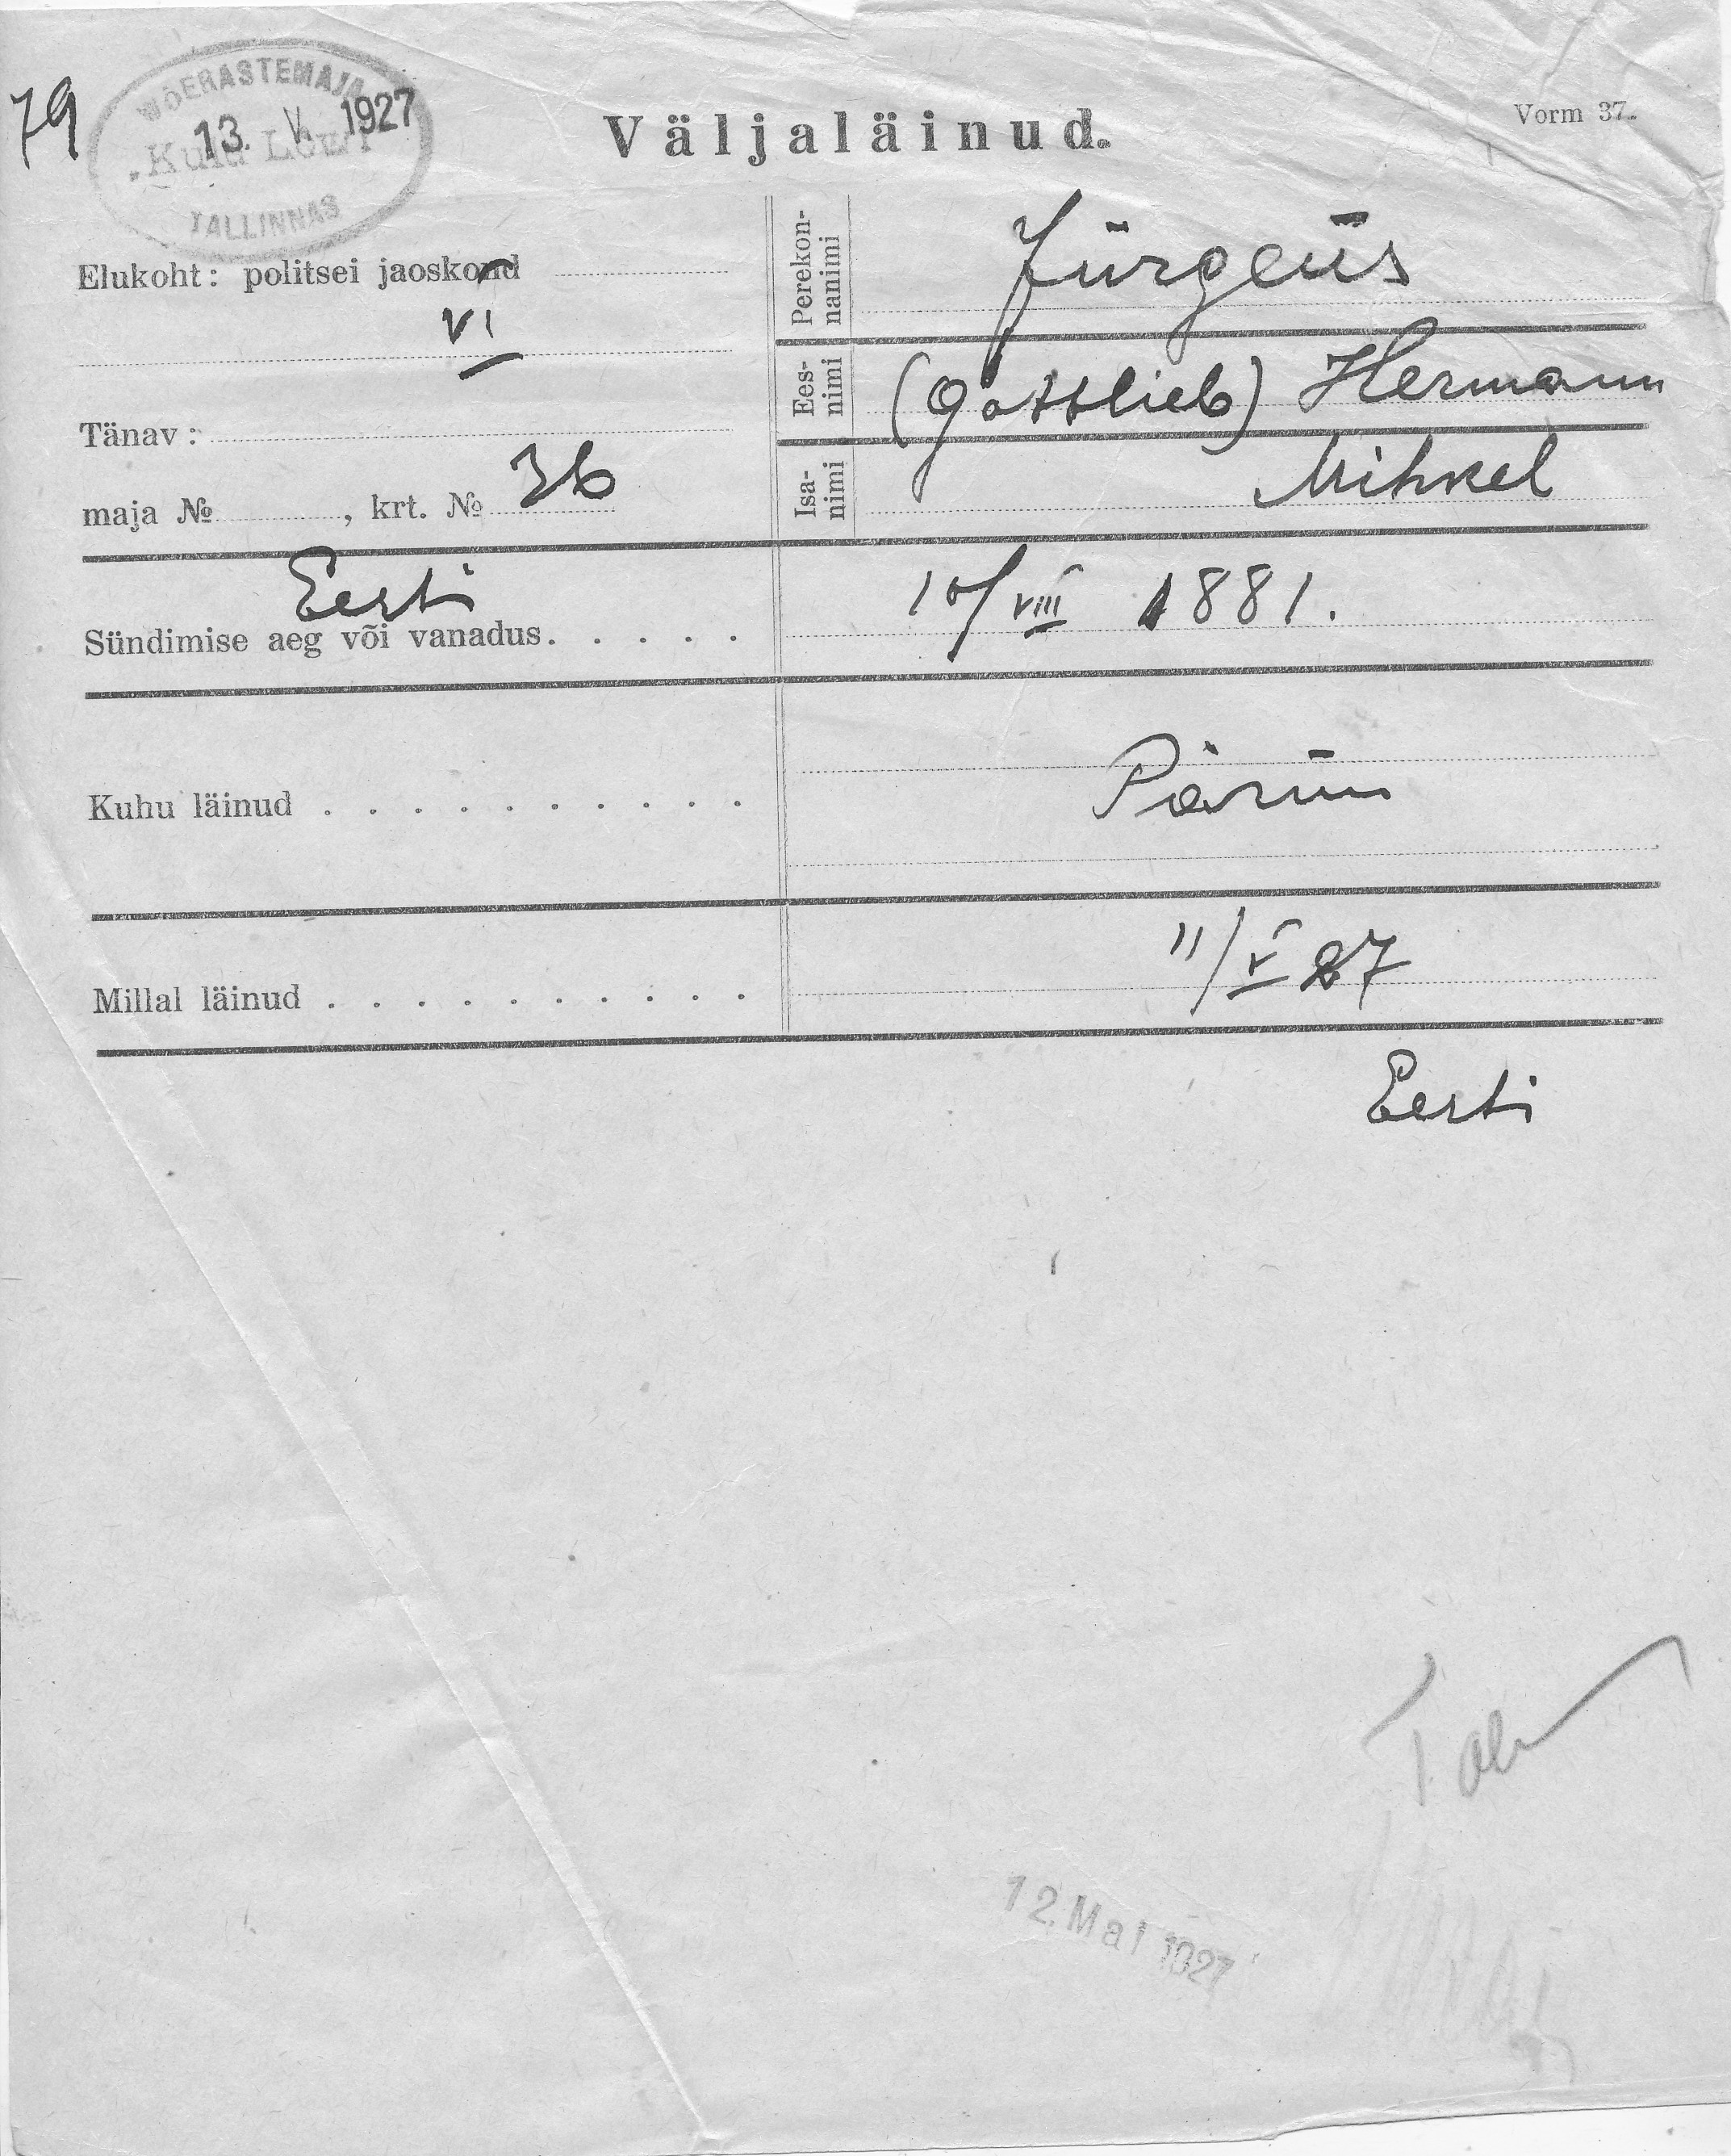 79
WÕERASTEMAJA
13. V. 1927
"Kuld Lõwi"
TALLINNAS
Väljaläinud.
Vorm 37.
Elukoht: politsei jaoskond
VI
Tänav:
maja № , krt. № 36
Perekonnanimi
Jürgens
Eesnimi
(Gottlieb) Hermann
Isanimi
Mihkel
Eesti
Sündimise aeg või vanadus.
10/VIII 1881.
Kuhu läinud
Pärnu
Millal läinud
11/V 27
Eesti
12. Mai 1927